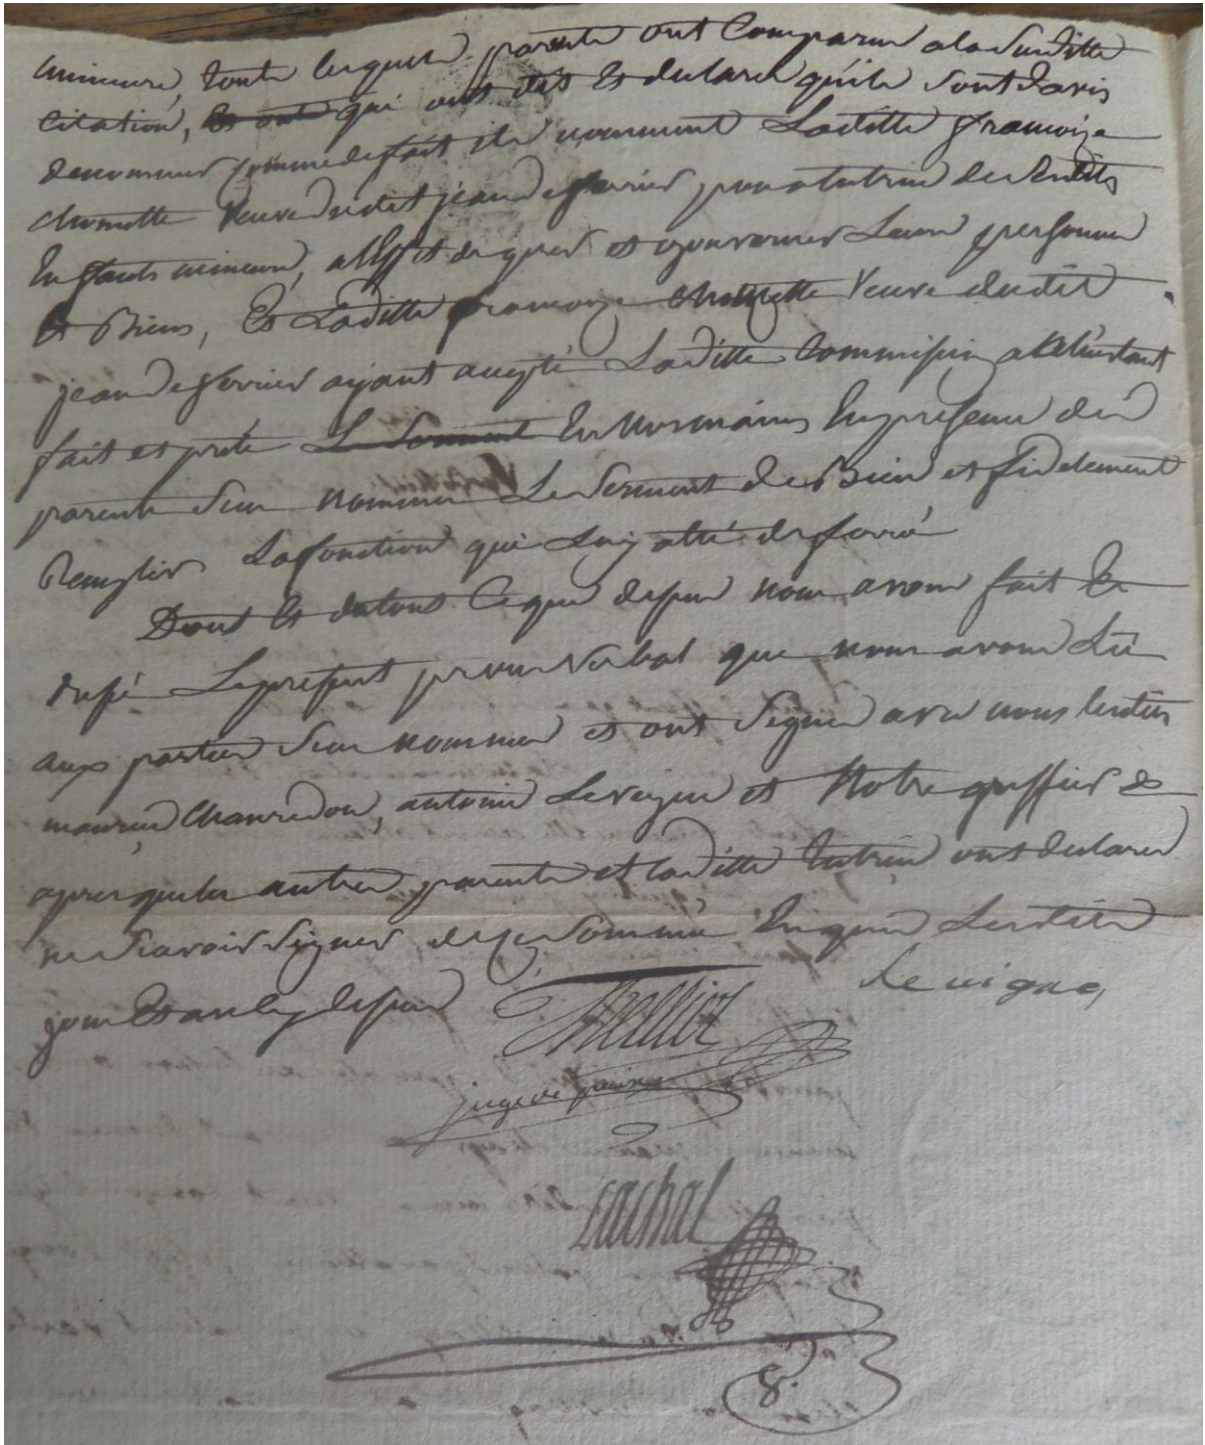 mineurs, tous lesquels parents ont comparus a la susditte
citation, et ont qui ont dis et declaré qu'ils sont d'avis
de nommer comme de fait ils nomment Laditte francoize
chomette Veuve dudit jean deferrier pour tutrice desdits
Enfants mineurs, a l'effet de gerer et gouverner Leurs personnes
et Biens, Et Laditte francoize chomette Veuve dudit
jean deferrier ayant accepté Laditte commission a a L'instant
fait et preté Le serment En nos mains En presence des
parents sus nommes Le serment de Bien et fidelement
Remplir La fonction qui Luy a été deferré
Dont Et du tout ce que dessus nous avons fait Et
dressé Le present procès Verbal que nous avons Lû
aux parties sus nommés et ont signés avec nous lesdits
maurice chauvedon, antoine Levigne et Notre greffier &
apres que les autres parents et laditte tutrice ont declarés
ne scavoir signer de ce sommé Enquis Lesdits
jour Et an ey dessus
Levigne,
juge de paix
Lachal
8.